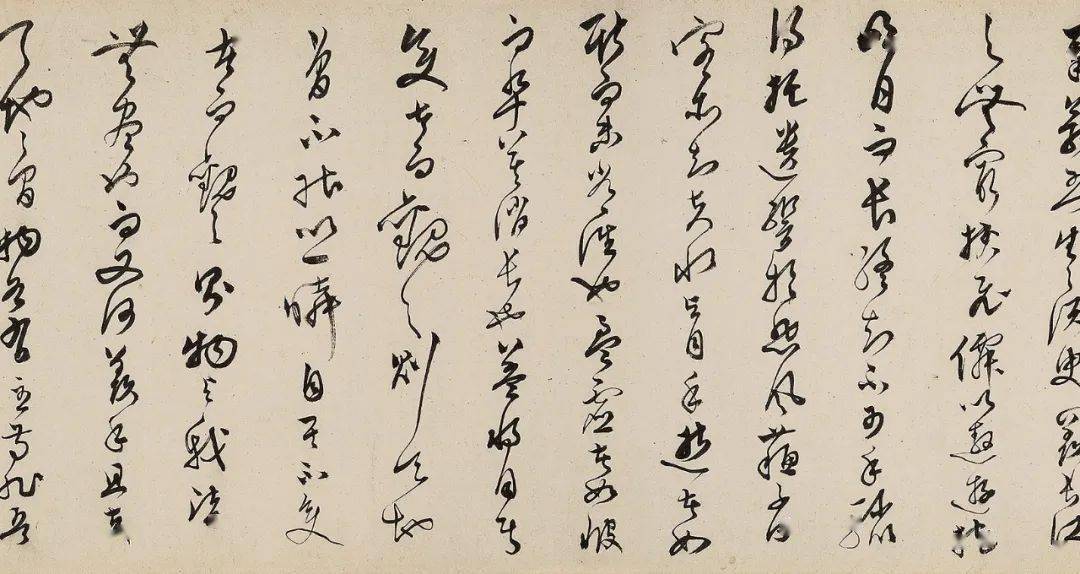 粟哀吾生之須臾羨長江
之無窮挾飛僊以遨遊抱
明月而長終知不可乎驟
得托遺響於悲風蘇子曰
客亦知夫水與月乎逝者如
斯而未嘗往也盈虛者如彼
而卒莫消長也蓋將自其
變者而觀之則天地
曾不能以一瞬自其不變
者而觀之則物與我皆
無盡也而又何羨乎且夫
天地之間物各有主苟非吾